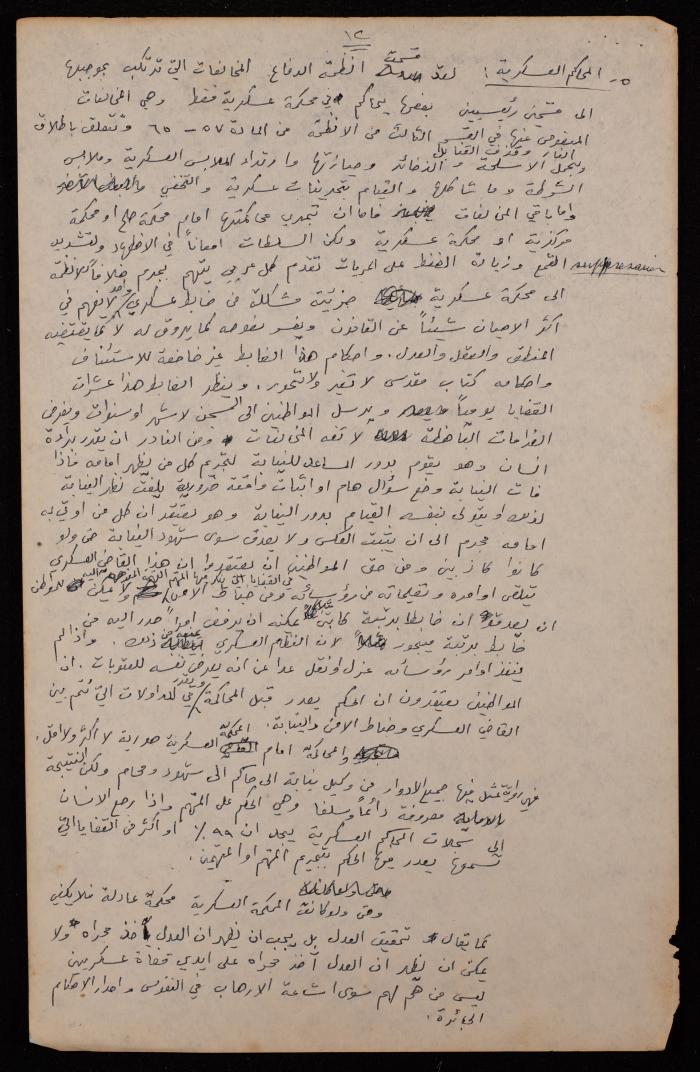 ١٢
٥- المحاكم العسكرية: لقد قسمت انظمة الدفاع المخالفات التي ترتكب بموجبها
الى قسمين رئيسيين بعضها يحاكم في محكمة عسكرية فقط وهي المخالفات
المنصوص عنها في القسم الثالث من الانظمة من المادة ٥٧ - ٦٥ وتتعلق باطلاق
النار وقذف القنابل
وحمل الاسلحة والذخائر وحيازتها وارتداء الملابس العسكرية وملابس
الشرطة وما شاكلها والقيام بتدريبات عسكرية والتخفي
واما باقي المخالفات فاما ان تجري محاكمتها امام محكمة صلح او محكمة
مركزية او محكمة عسكرية ولكن السلطات امعاناً في الاضطهاد وتشديد
suppression القمع وزيادة الضغط على الحريات تقدم كل عربي يتهم بجرم خلافاً للانظمة
الى محكمة عسكرية جزئية مشكلة من ضابط عسكري واحد لا يفهم في
اكثر الاحيان شيئاً عن القانون ويفسر نصوصه كما يروق له لا كما يقتضيه
المنطق والعقل والعدل. واحكام هذا الضابط غير خاضعة للاستئناف
واحكامه كتاب مقدس لا تغير ولا تتحور. وينظر الضابط هذا عشرات
القضايا يومياً ويرسل المواطنين الى السجن لاشهر او سنوات ويفرض
الغرامات الباهظة لاتفه المخالفات ومن النادر ان يقدر براءة
انسان وهو يقوم بدور المساعد للنيابة لتجريم كل من يظهر امامه فاذا
فات النيابة وضع سؤال هام او اثبات واقعة ضرورية يلفت نظر النيابة
لذلك او يتولى لنفسه القيام بدور النيابة وهو يعتقد ان كل من اوتي به
امامه مجرم الى ان يثبت العكس ولا يصدق سوى شهود النيابة حتى ولو
كانوا كاذبين ومن حق المواطنين ان يعتقدوا ان هذا القاضي العسكري
يتلقى اوامره وتعليماته من رؤسائه ومن ضباط الامن في القضايا التي ولا يمكن للمواطن
ان يصدق ان ضابطا برتبة كابتن مثلا يمكنه ان يرفض امراً صدر اليه من
ضابط برتبة ميجور لان النظام العسكري ذلك. واذا لم
ينفذ اوامر رؤسائه عزل او نقل عدا عن انه يعرض نفسه للعقوبات. ان
المواطنين يعتقدون ان الحكم يصدر قبل المحاكمة في المداولات التي تتم بين
القاضي العسكري وضباط الامن والنيابة.
والمحاكمة امام المحكمة العسكرية صورية لا اكثر ولا اقل.
فهي رواية تمثل فيها جميع الادوار من وكيل نيابة الى حاكم الى شهود ومحام ولكن النتيجة
معروفة دائماً وسلفا وهي الحكم على المتهم واذا رجع الانسان
الى سجلات المحاكم العسكرية يجد ان ٩٩٪ او اكثر من القضايا التي
تسمعها يصدر فيها الحكم بتجريم المتهم او المتهمين.
وحتى ولو كانت المحكمة العسكرية محكمة عادلة فلا يكفي
كما يقال تحقيق العدل بل يجب ان يظهر ان العدل يأخذ مجراه ولا
يمكن ان يظهر ان العدل آخذ مجراه على ايدي قضاة عسكريين
ليس من هم لهم سوى اشاعة الارهاب في النفوس واصدار الاحكام
الجائرة.